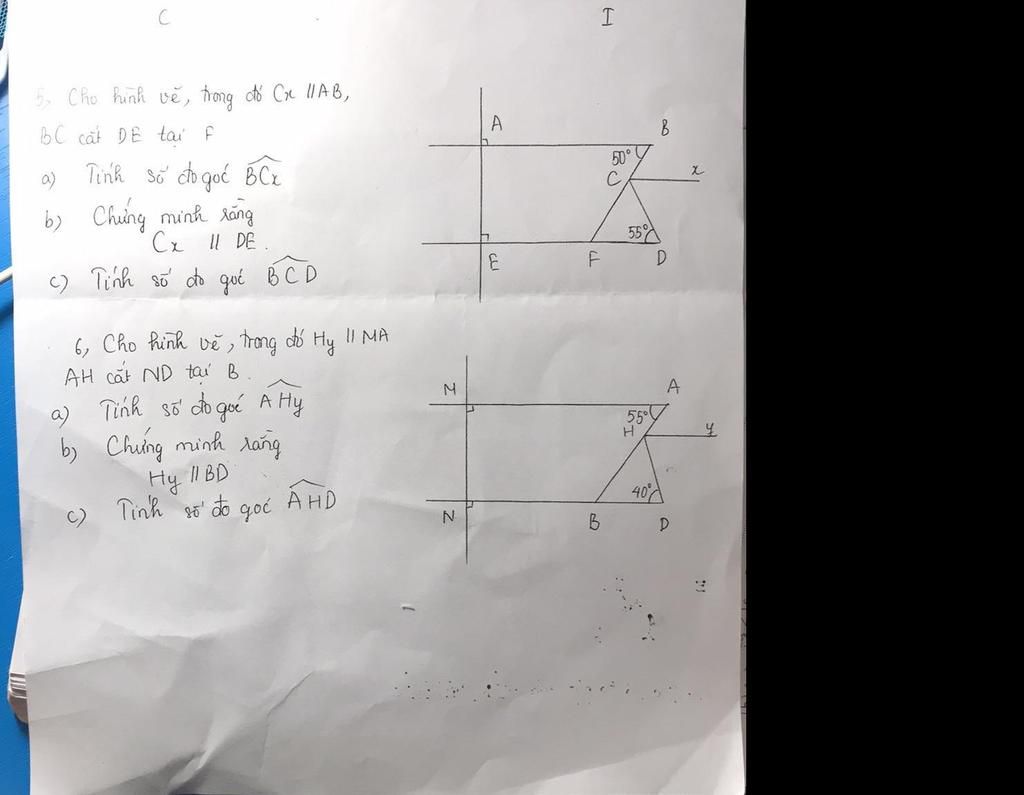 C
I
5, Cho hình vẽ, trong đó Cx // AB,
BC cắt DE tại F
a) Tính số đo góc BCx
b) Chứng minh rằng
Cx // DE.
c) Tính số đo góc BCD
A
B
50°
C
x
55°
E
F
D
6, Cho hình vẽ, trong đó Hy // MA
AH cắt ND tại B.
a) Tính số đo góc AHy
b) Chứng minh rằng
Hy // BD
c) Tính số đo góc AHD
M
A
55°
H
y
40°
N
B
D